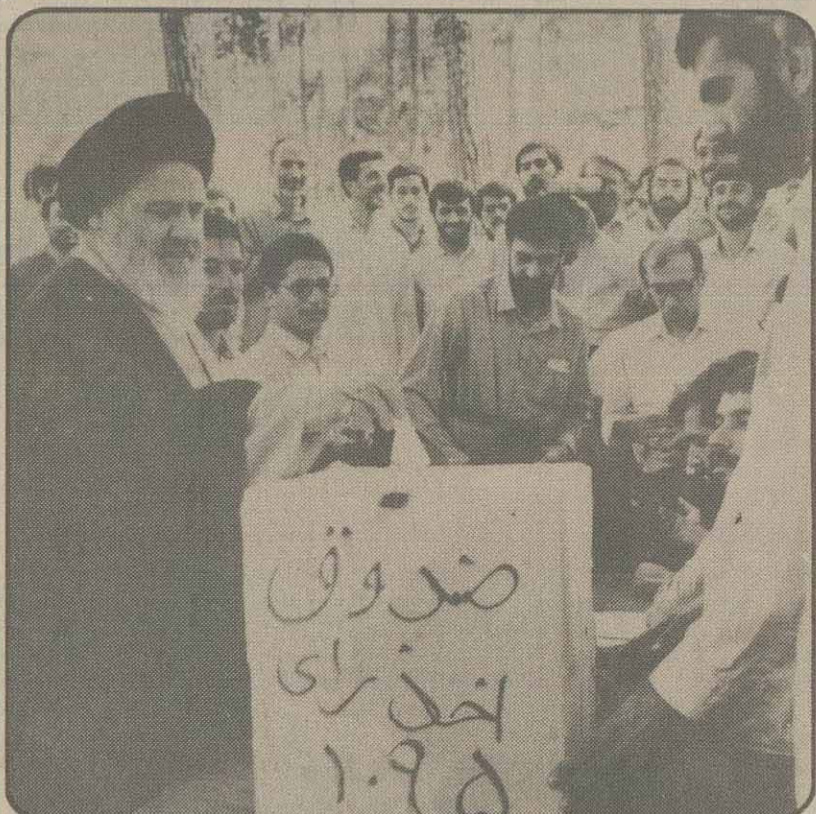 صندوق
اخذ رای
۱۰۹۵